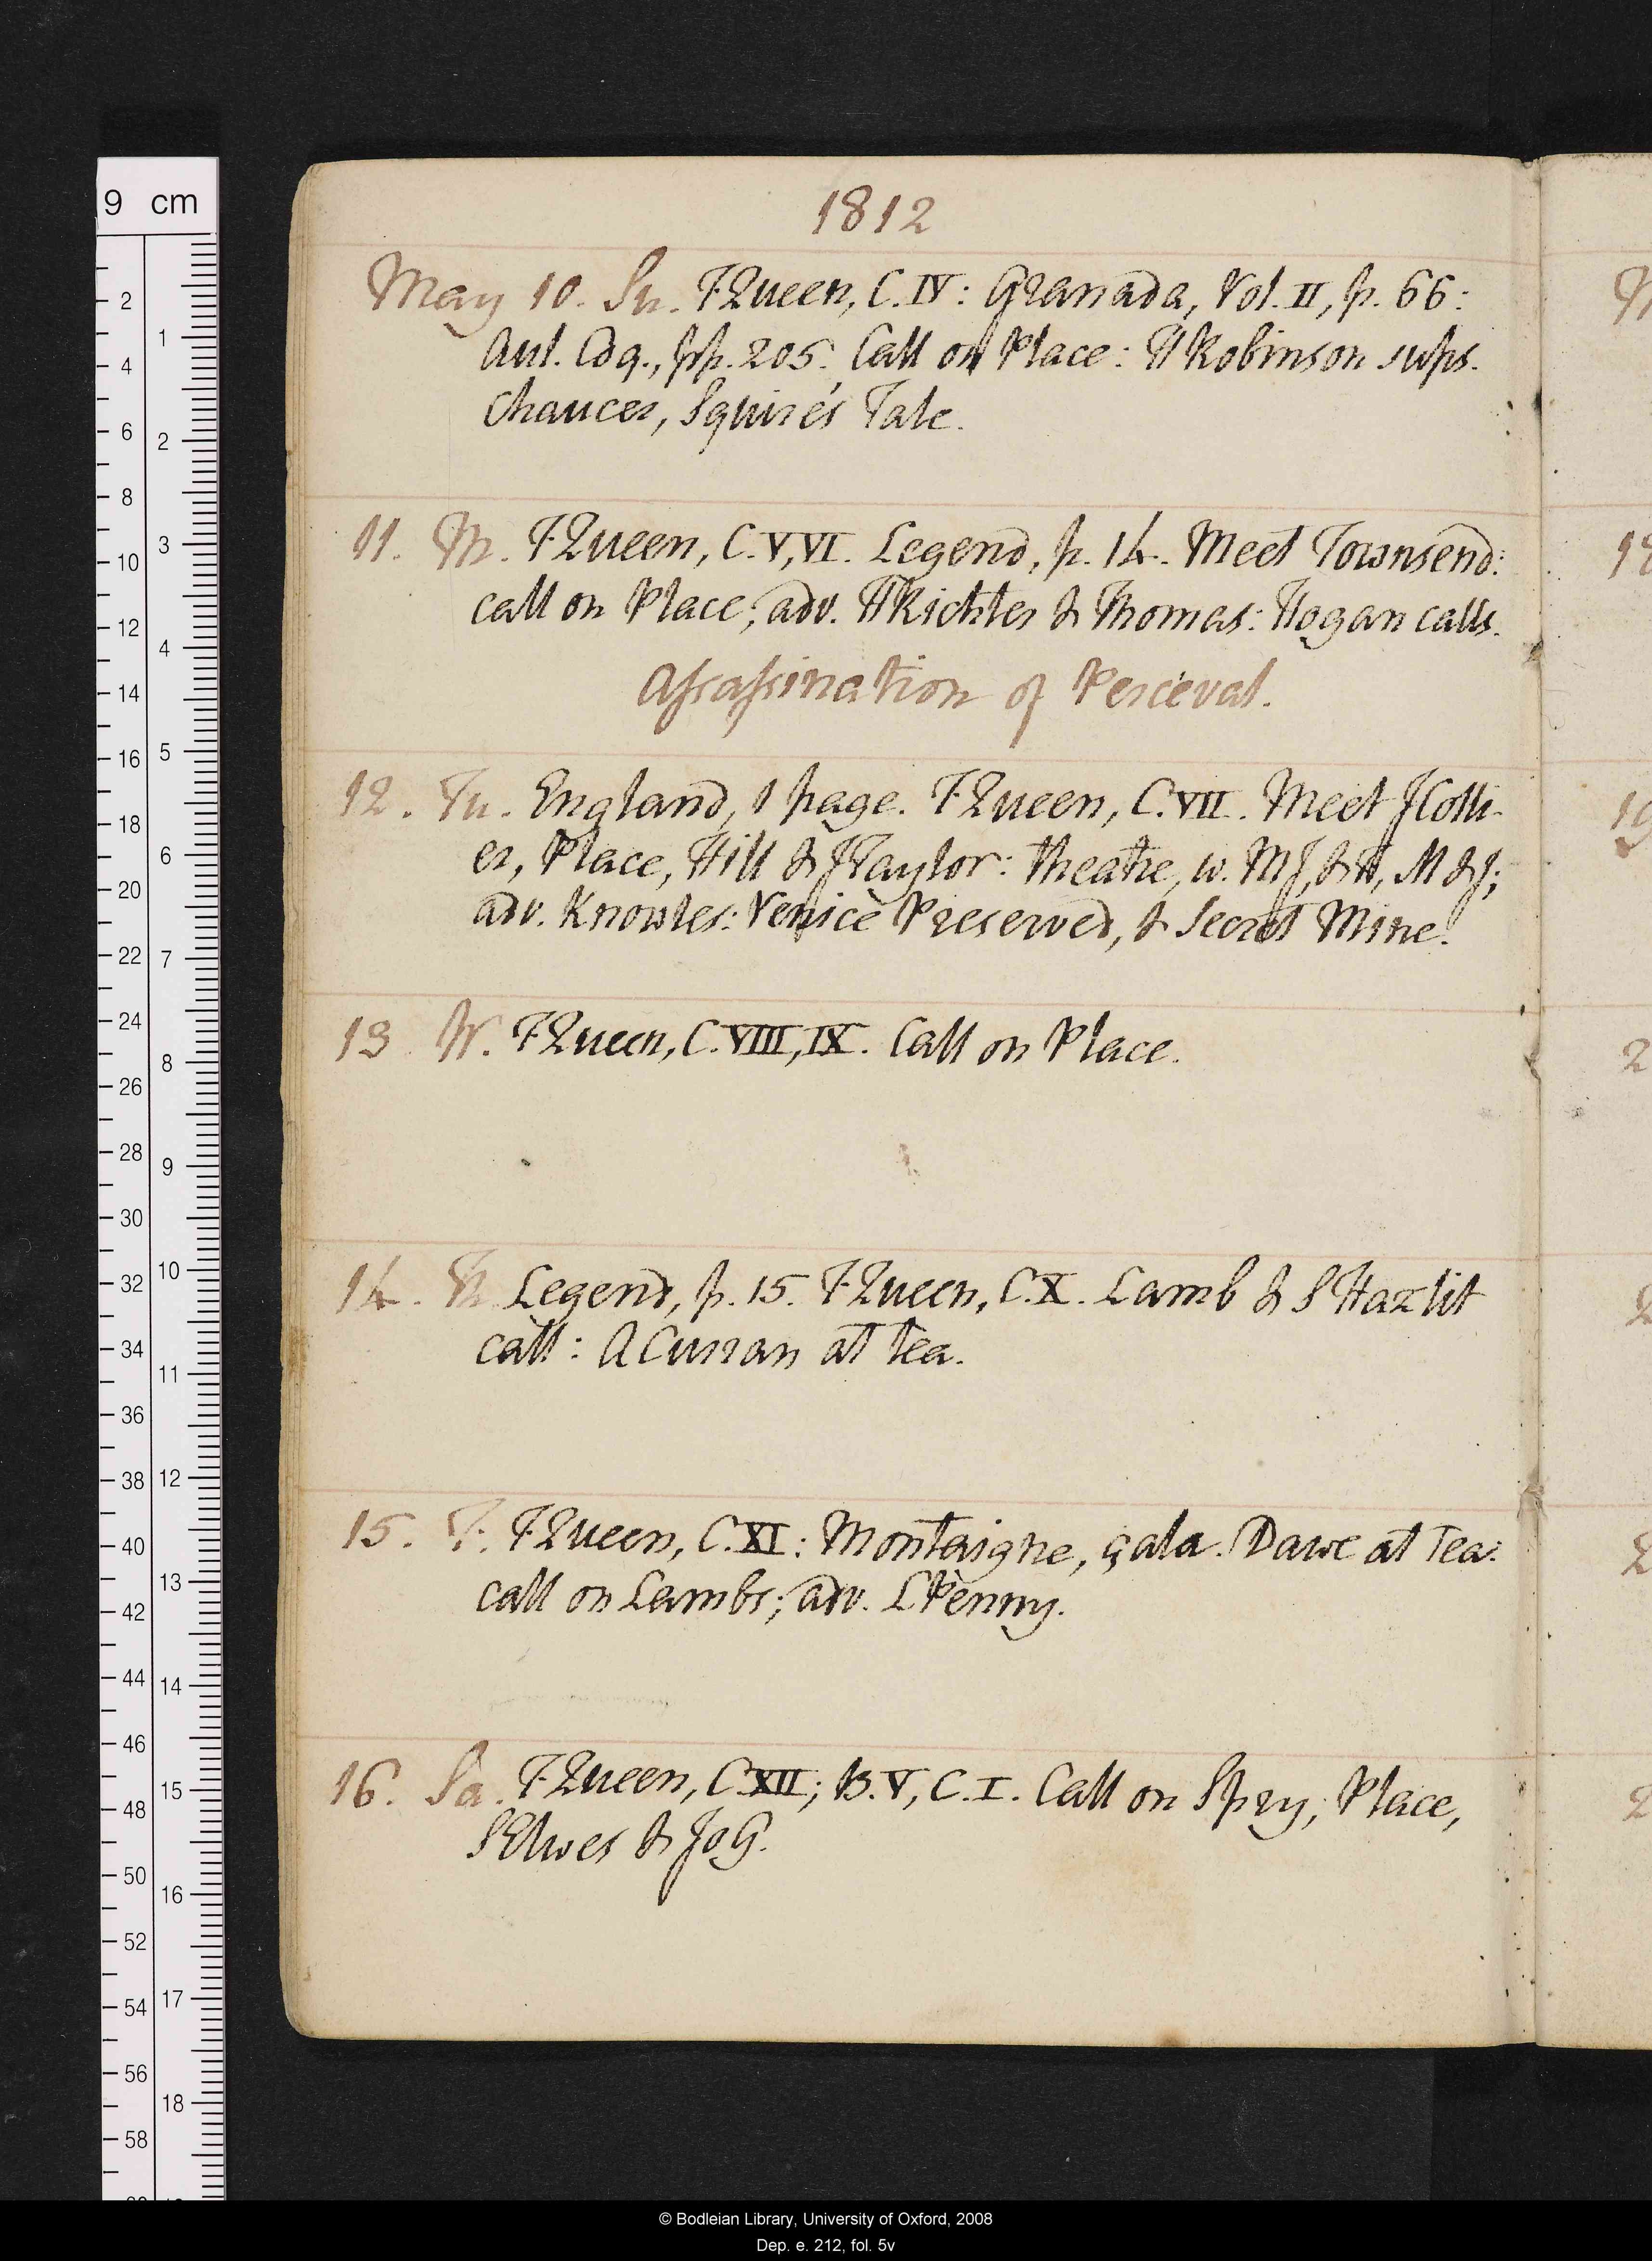 1812
May 10. Su. F.Queen, C. IV: Granada, Vol. II, p. 66:
Aul. Coq., pp. 205. Call on Place: H Robinson sups.
Chaucer, Squire's Tale.
11. M. F.Queen, C. V, VI. Legend, p. 14. Meet Townsend:
call on Place; adv. H Richter & Thomas: Hogan calls.
Assassination of Perceval.
12. Tu. England, 1 page. F.Queen, C. VII. Meet J Colli-
er, Place, Hill & J Taylor: theatre, w. M J, & H, M & J;
adv. Knowles: Venice Preserved, & Secret Mine.
13 W. F.Queen, C. VIII, IX. Call on Place.
14. Th. Legend, p. 15. F.Queen, C. X. Lamb & S Hazlit
call: A Curran at tea.
15. F. F.Queen, C. XI: Montaigne, çala. Dawe at tea:
call on Lambs; adv. L Kenny.
16. Sa. F.Queen, C. XII; B. V, C. I. Call on Spry, Place,
S Elwes & Jo G.
9 cm
2 4 6 8 10 12 14 16 18 20 22 24 26 28 30 32 34 36 38 40 42 44 46 48 50 52 54 56 58
1 2 3 4 5 6 7 8 9 10 11 12 13 14 15 16 17 18
© Bodleian Library, University of Oxford, 2008
Dep. e. 212, fol. 5v